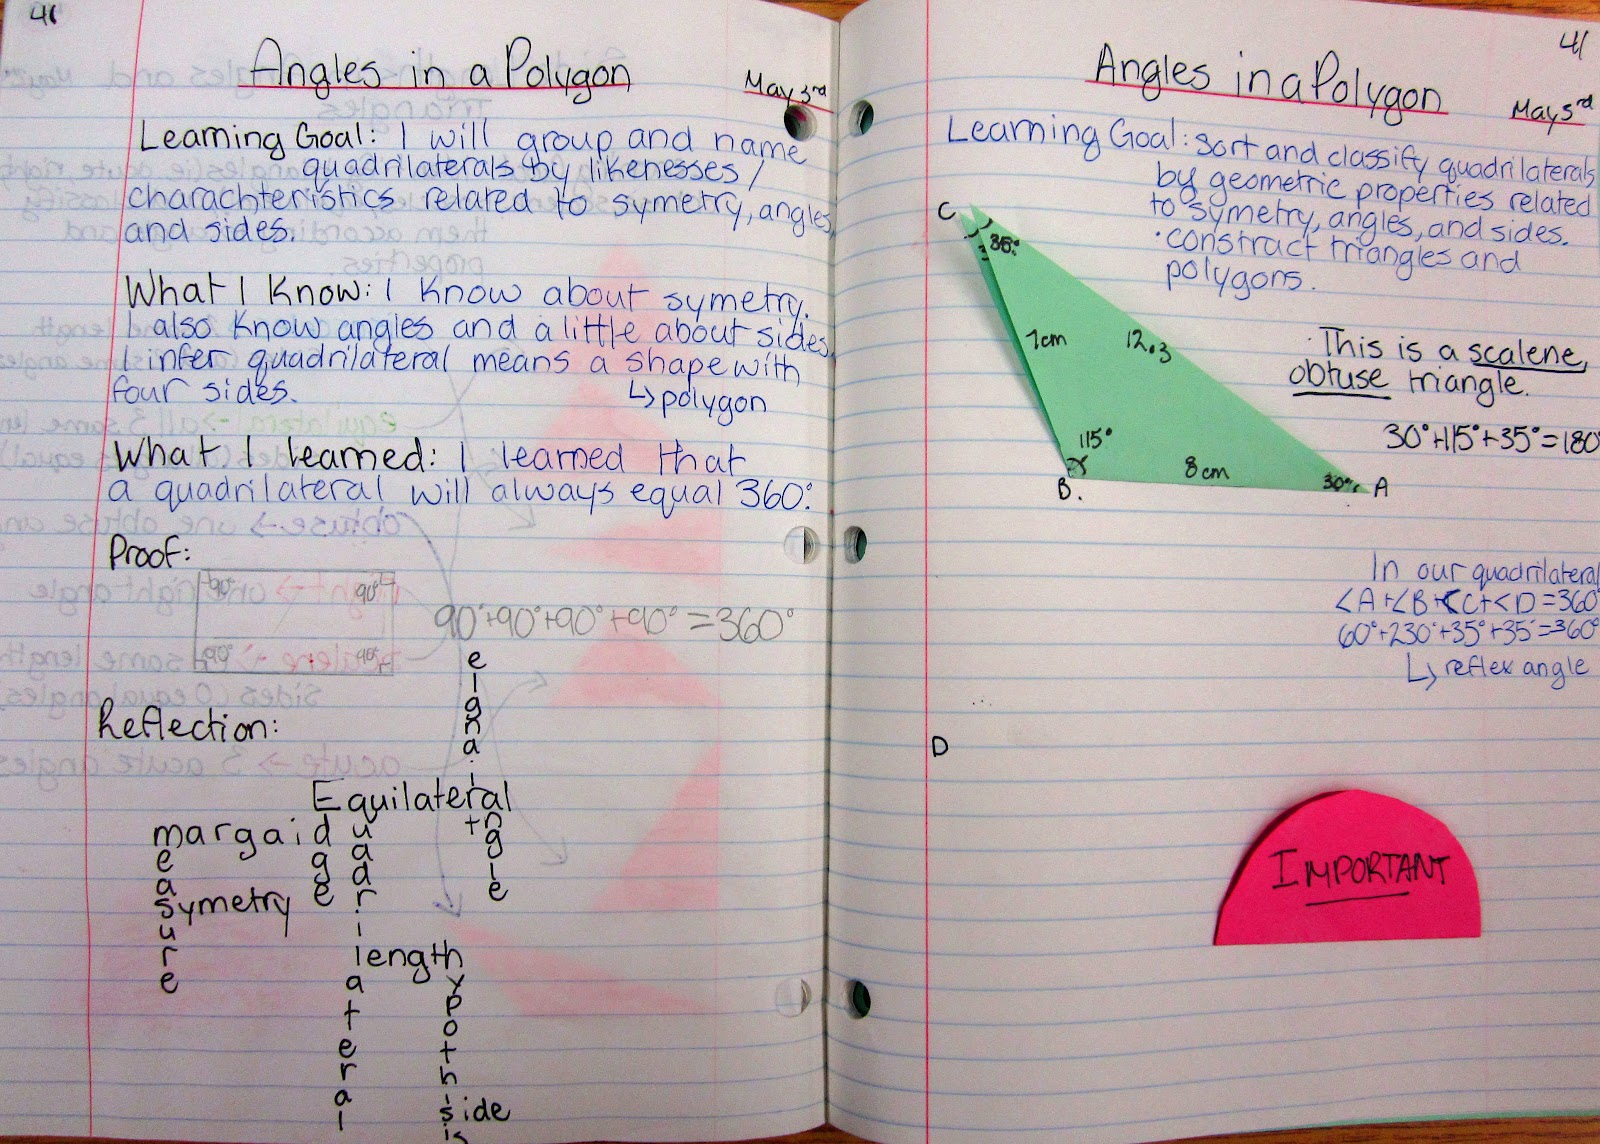 41
Angles in a Polygon
May 3rd
Learning Goal: I will group and name
quadrilaterals by likenesses /
charachteristics related to symetry, angles,
and sides.
What I Know: I know about symetry.
I also know angles and a little about sides.
I infer quadrilateral means a shape with
four sides.
↳ polygon
What I learned: I learned that
a quadrilateral will always equal 360°.
Proof:
90° 90°
90° 90°
90°+90°+90°+90°=360°
Reflection:
Equilateral
margaid
measure
symetry
edge
quadrilateral
triangle
angle
length
hypothisis
side
41
Angles in a Polygon
May 3rd
Learning Goal: Sort and classify quadrilaterals
by geometric properties related
to symetry, angles, and sides.
· construct triangles and
polygons.
C
35°
7cm
12.3
This is a scalene,
obtuse triangle.
30°+115°+35°=180°
115°
8cm
30°
A
B.
In our quadrilateral
<A+<B+<C+<D=360°
60°+230°+35°+35°=360°
↳ reflex angle
D
IMPORTANT